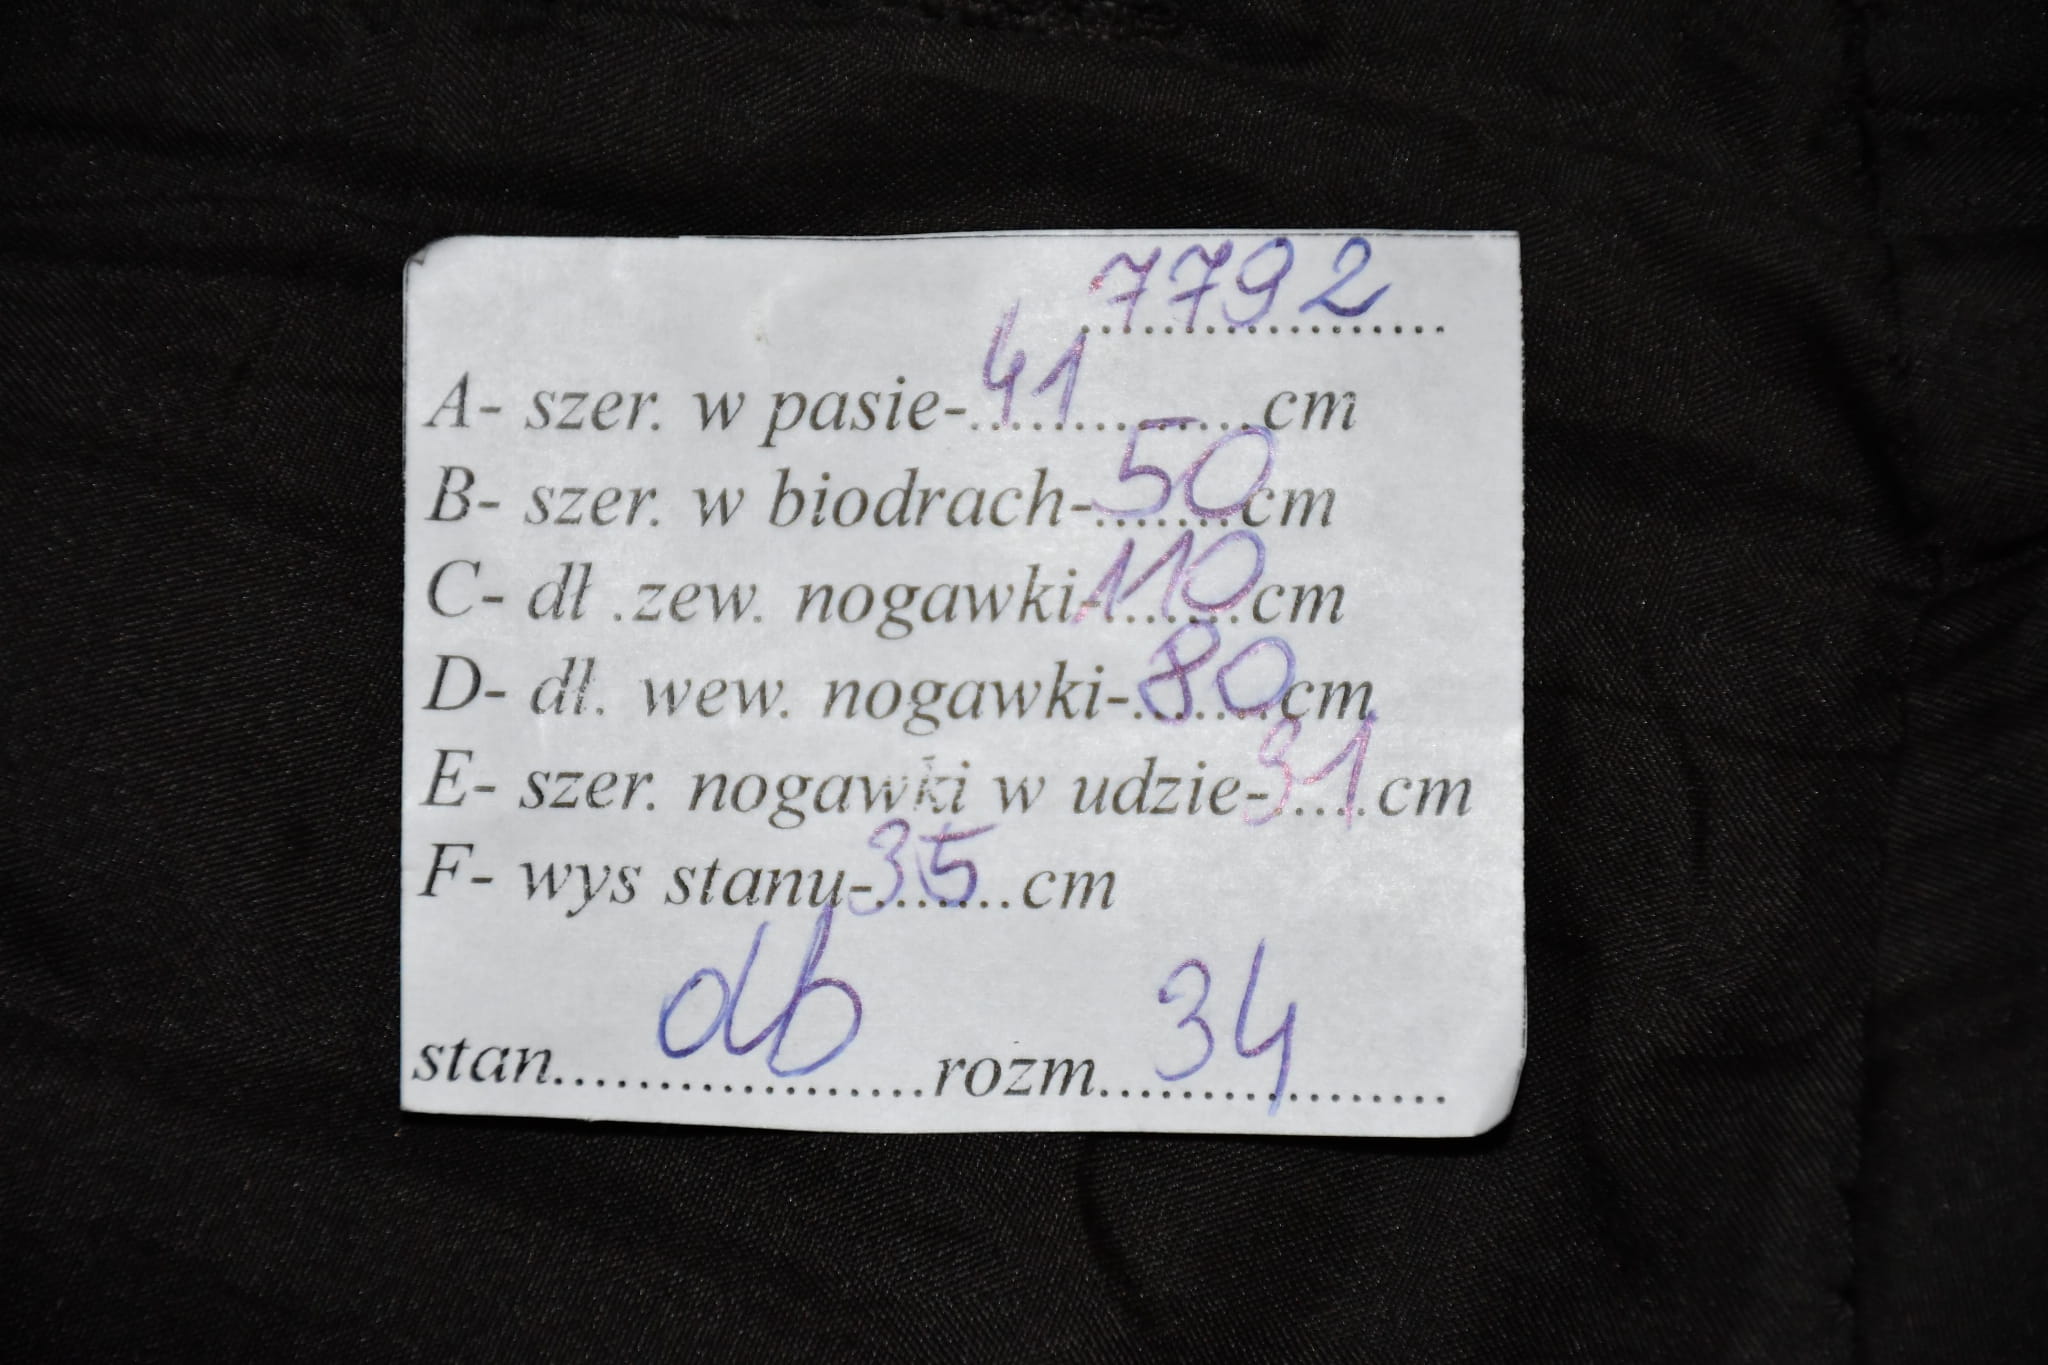 7792
A- szer. w pasie-41cm
B- szer. w biodrach-50cm
C- dł .zew. nogawki-110cm
D- dł. wew. nogawki-80cm
E- szer. nogawki w udzie-31cm
F- wys stanu-35cm
stan db rozm 34